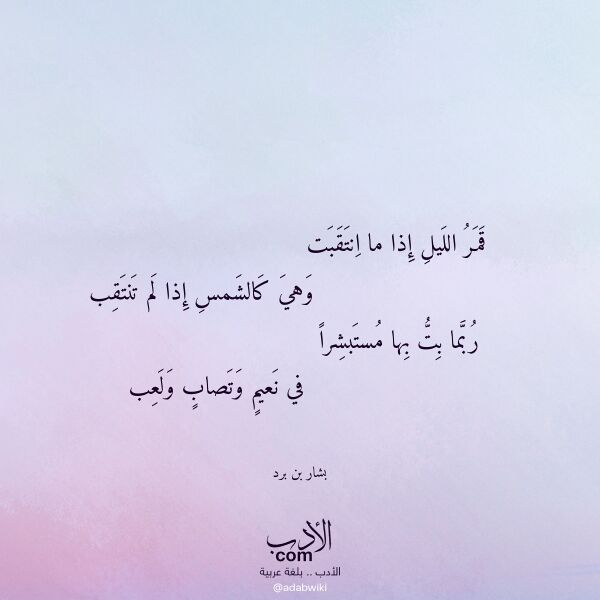 قَمَرُ اللَيلِ إِذا ما اِنتَقَبَت
وَهيَ كَالشَمسِ إِذا لَم تَنتَقِب
رُبَّما بِتُّ بِها مُستَبشِراً
في نَعيمٍ وَتَصابٍ وَلَعِب
بشار بن برد
الأدب
.com
الأدب .. بلغة عربية
@adabwiki